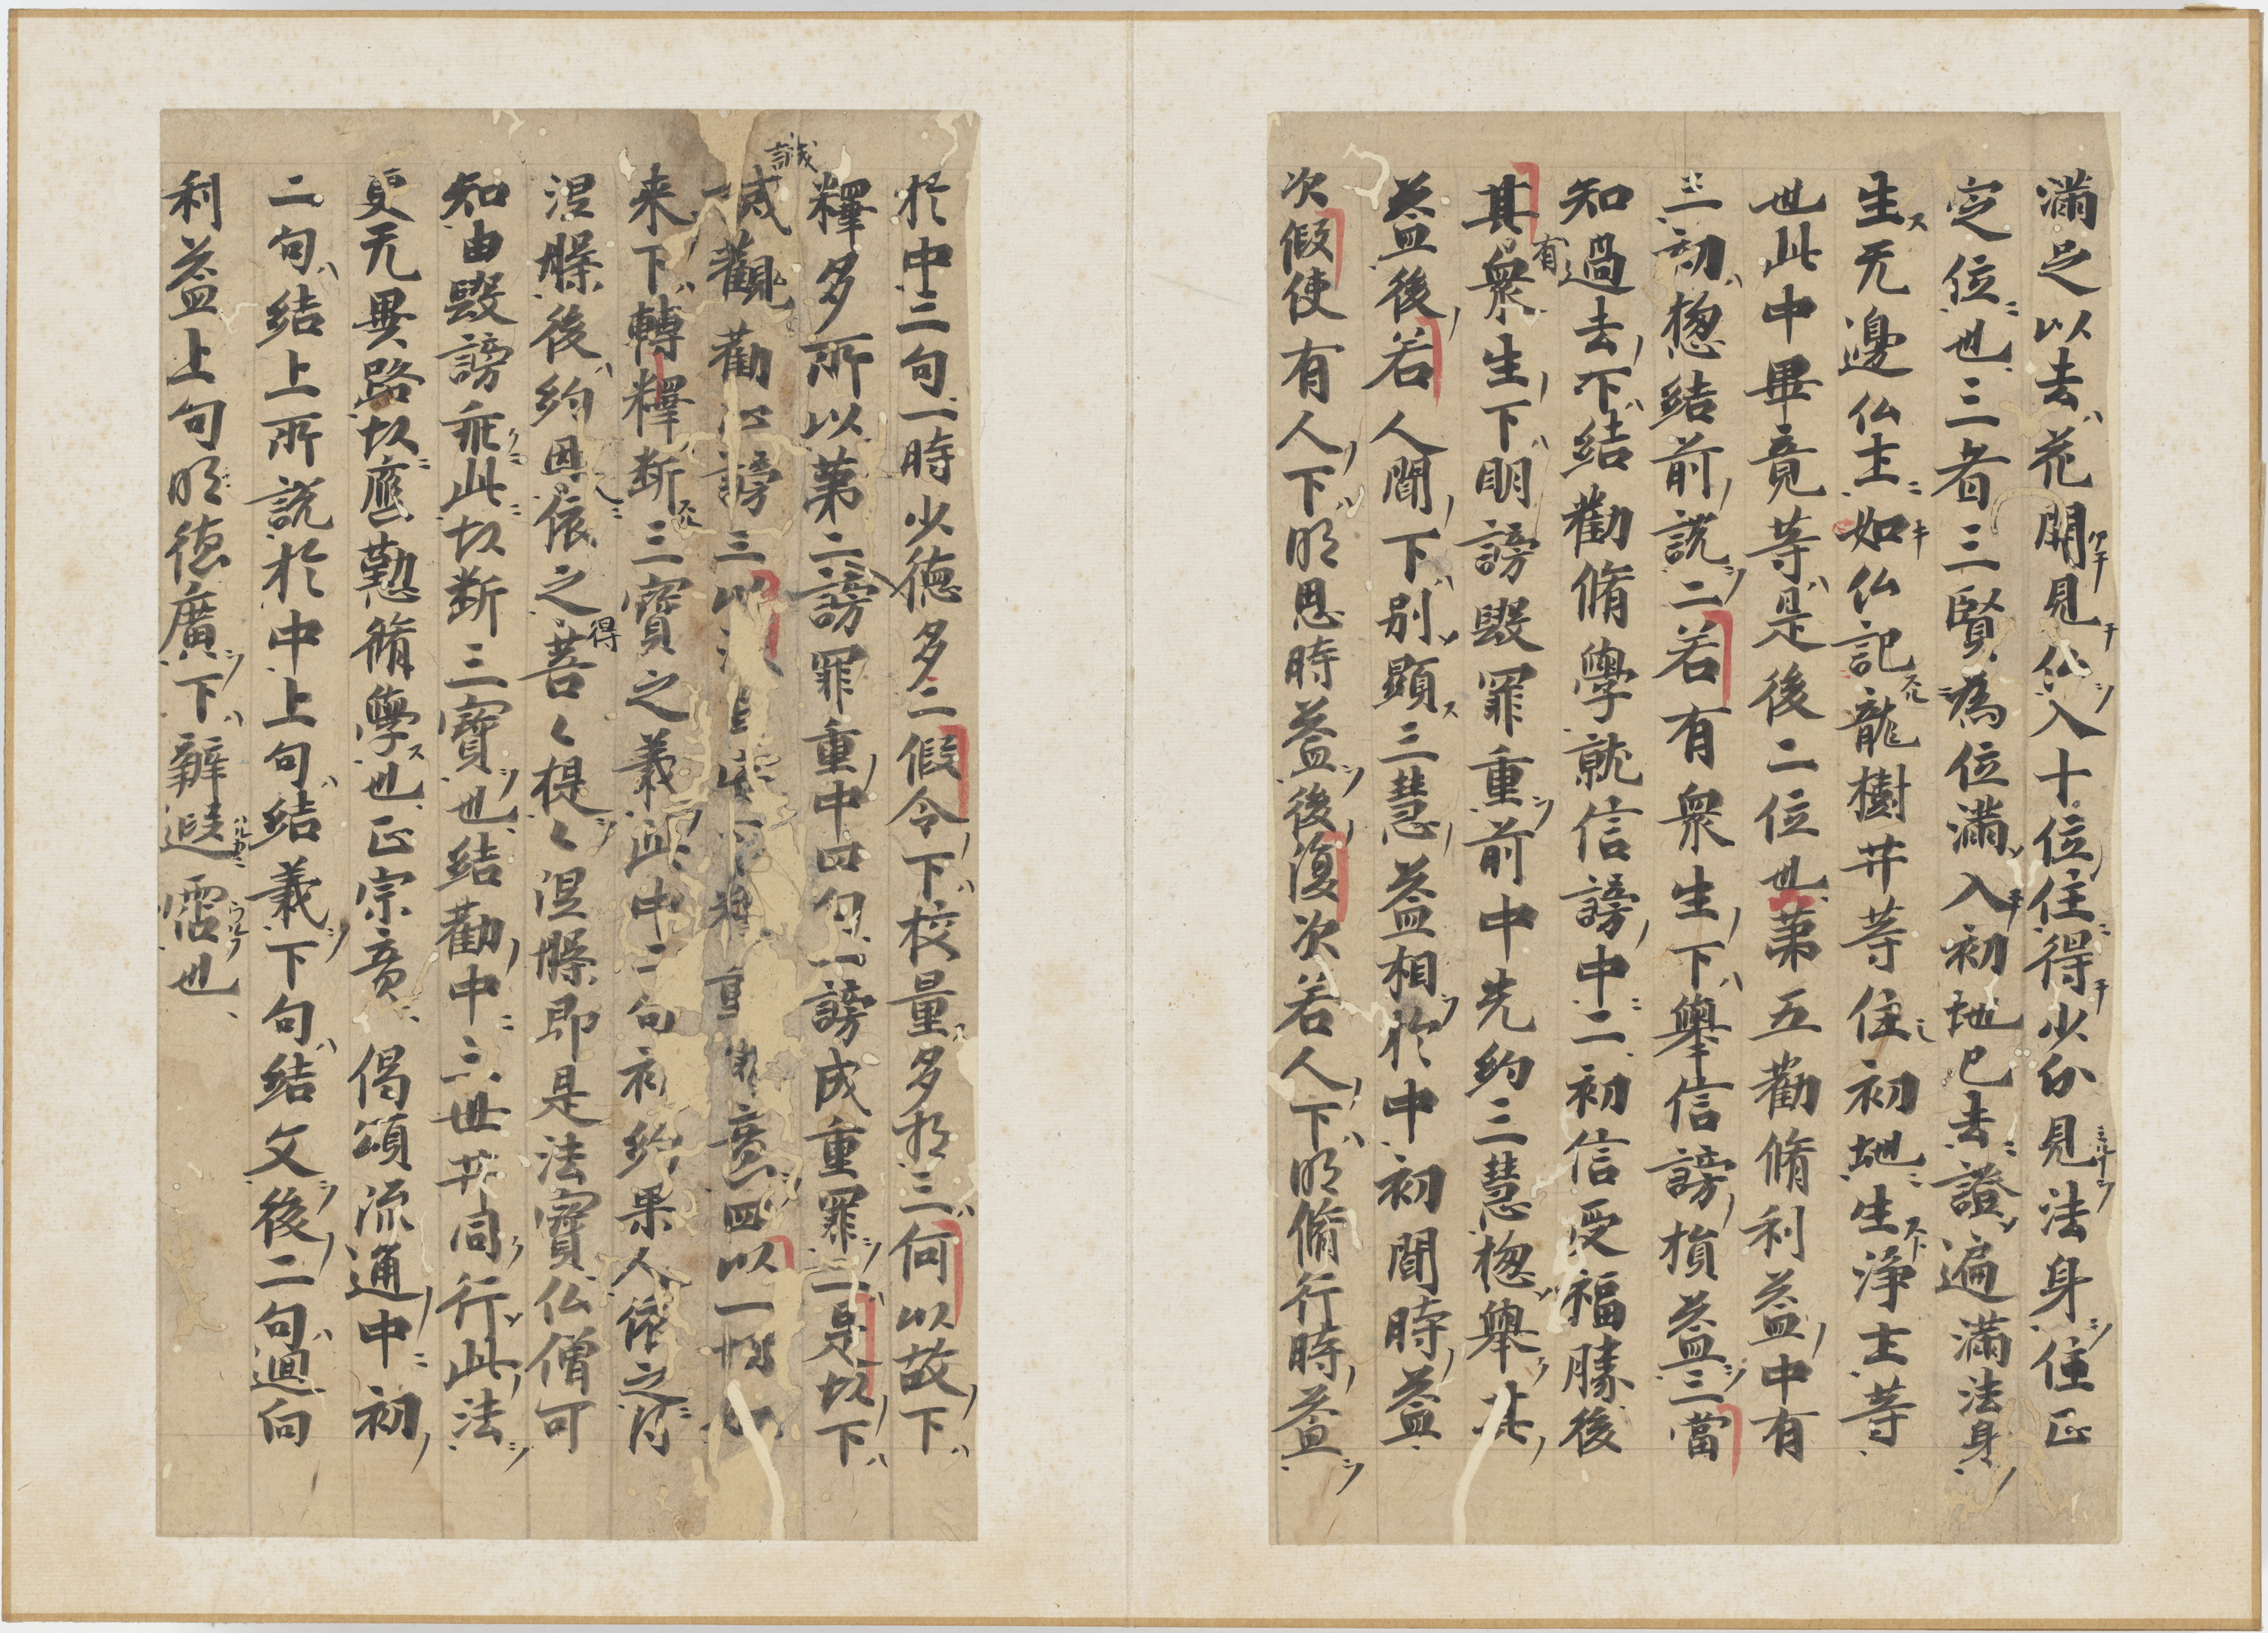 滿足以去花開見仏入十位住得少分見法身住正
定位也三者三賢為位滿入初地已去證遍滿法身
生无邊仏土如仏記龍樹菩薩等住初地生淨土等
世此中畢竟等是後二位也第五勸脩利益中有
三初惣結前說二若有衆生下舉信謗損益三當
知過去下結勸脩學就信謗中二初信受福勝後
其有衆生下明謗毀罪重前中先約三慧惣舉其
益後若人聞下別顯三慧益相於中初聞時益
次假使有人下明思時益後復次若人下明脩行時益
於中三句一時少德多二假令下校量多於三何以故下
釋多所以第二謗罪重中四句一謗成重罪二是故下
誡勸止謗三以深
来下轉釋断三寳之義此中二句初約果人依之得
涅槃後約因人依之得菩々提々涅槃即是法寳仏僧可
知由毀謗乖此故断三寳也結勸中三世共同行此法
更无異路故應勤脩學也正宗竟偈頌流通中初
二句結上所說於中上句結義下句結文後二句迴向
利益上句明德廣下辨遐霑也